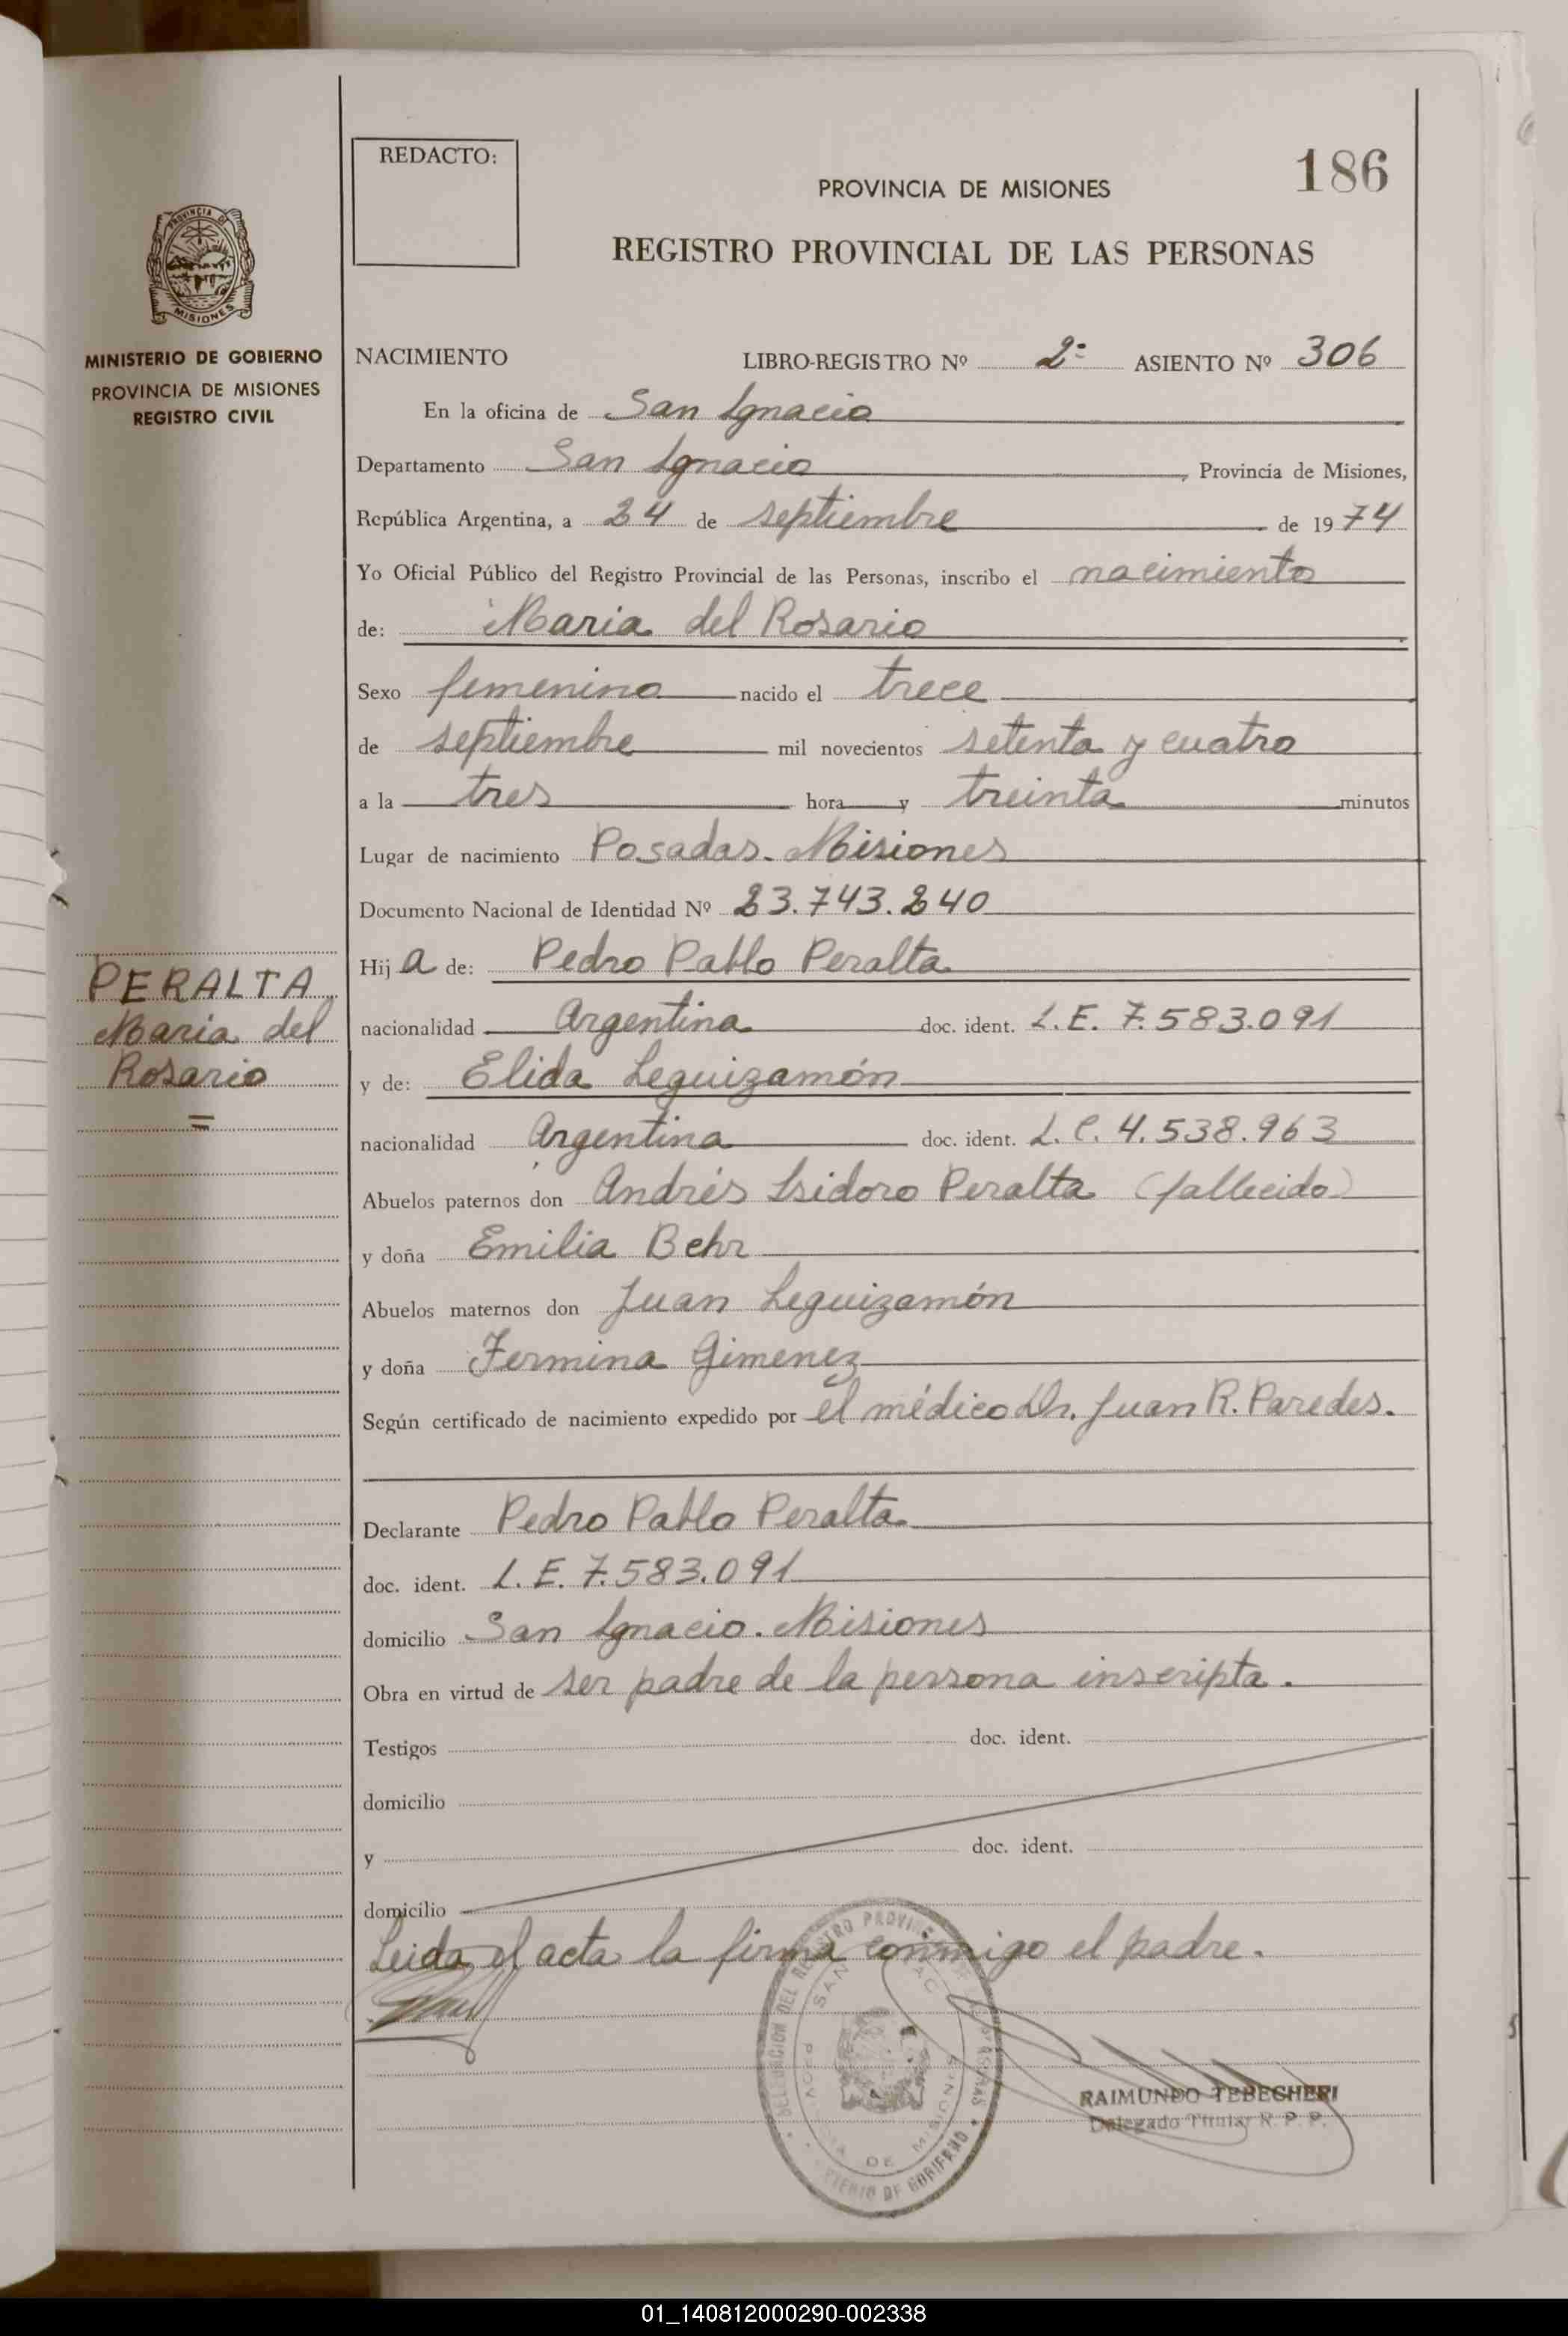 186
REDACTO:
PROVINCIA DE MISIONES
REGISTRO PROVINCIAL DE LAS PERSONAS
PROVINCIA DE
MISIONES
MINISTERIO DE GOBIERNO
PROVINCIA DE MISIONES
REGISTRO CIVIL
NACIMIENTO LIBRO-REGISTRO Nº 2º ASIENTO Nº 306
En la oficina de San Ignacio
Departamento San Ignacio, Provincia de Misiones,
República Argentina, a 24 de septiembre de 1974
Yo Oficial Público del Registro Provincial de las Personas, inscribo el nacimiento
de: Maria del Rosario
Sexo femenino nacido el trece
de septiembre mil novecientos setenta y cuatro
a la tres hora y treinta minutos
Lugar de nacimiento Posadas. Misiones
Documento Nacional de Identidad Nº 23.743.240
Hija de: Pedro Pablo Peralta
nacionalidad Argentina doc. ident. L.E. 7.583.091
y de: Elida Leguizamón
nacionalidad Argentina doc. ident. L.C. 4.538.963
Abuelos paternos don Andrés Isidoro Peralta (fallecido)
y doña Emilia Behr
Abuelos maternos don Juan Leguizamón
y doña Fermina Gimenez
Según certificado de nacimiento expedido por el médico Dr. Juan R. Paredes.
PERALTA
Maria del
Rosario
=
Declarante Pedro Pablo Peralta
doc. ident. L.E. 7.583.091
domicilio San Ignacio. Misiones
Obra en virtud de ser padre de la persona inscripta.
Testigos doc. ident.
domicilio
y doc. ident.
domicilio
Leida el acta la firma conmigo el padre.
RAIMUNDO TEBEGHERI
Delegado Titular R. P. P.
01_140812000290-002338